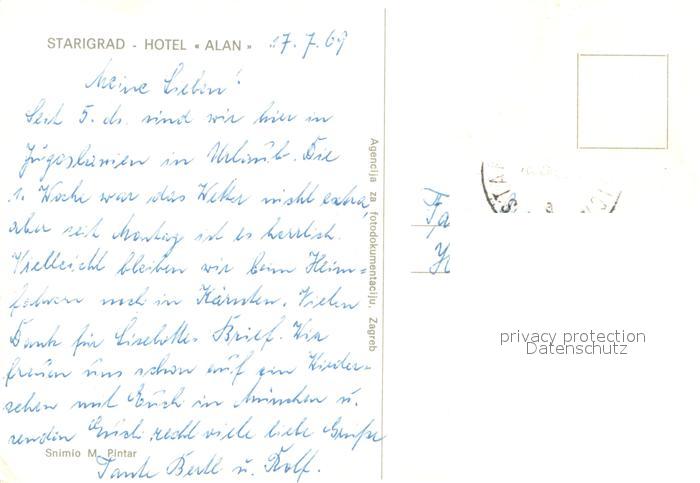 STARIGRAD - HOTEL « ALAN » 17.7.69
Meine Lieben!
Seit 5. ds. sind wir hier in
Jugoslawien in Urlaub. Die
1. Woche war das Wetter nicht extra,
aber seit Montag ist es herrlich.
Vielleicht bleiben wir beim Heim=
fahren noch in Kärnten. Vielen
Dank für Liselottes Brief. Wir
freuen uns schon auf ein Wieder-
sehen mit Euch in München u.
senden Euch recht viele liebe Grüße
Tante Bertl u. Rolf.
Snimio M. Pintar
Agencija za fotodokumentaciju, Zagreb
Fa
privacy protection
Datenschutz